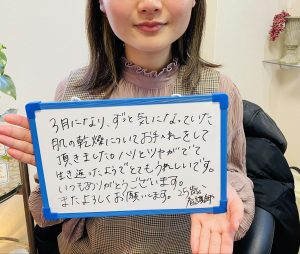 3月になり、ずっと気になっていた
肌の乾燥についてお手入れをして
頂きました。ハリとツヤがでて
生き返ったようでとてもうれしいです。
いつもありがとうございます。
またよろしくお願いします。25歳
看護師